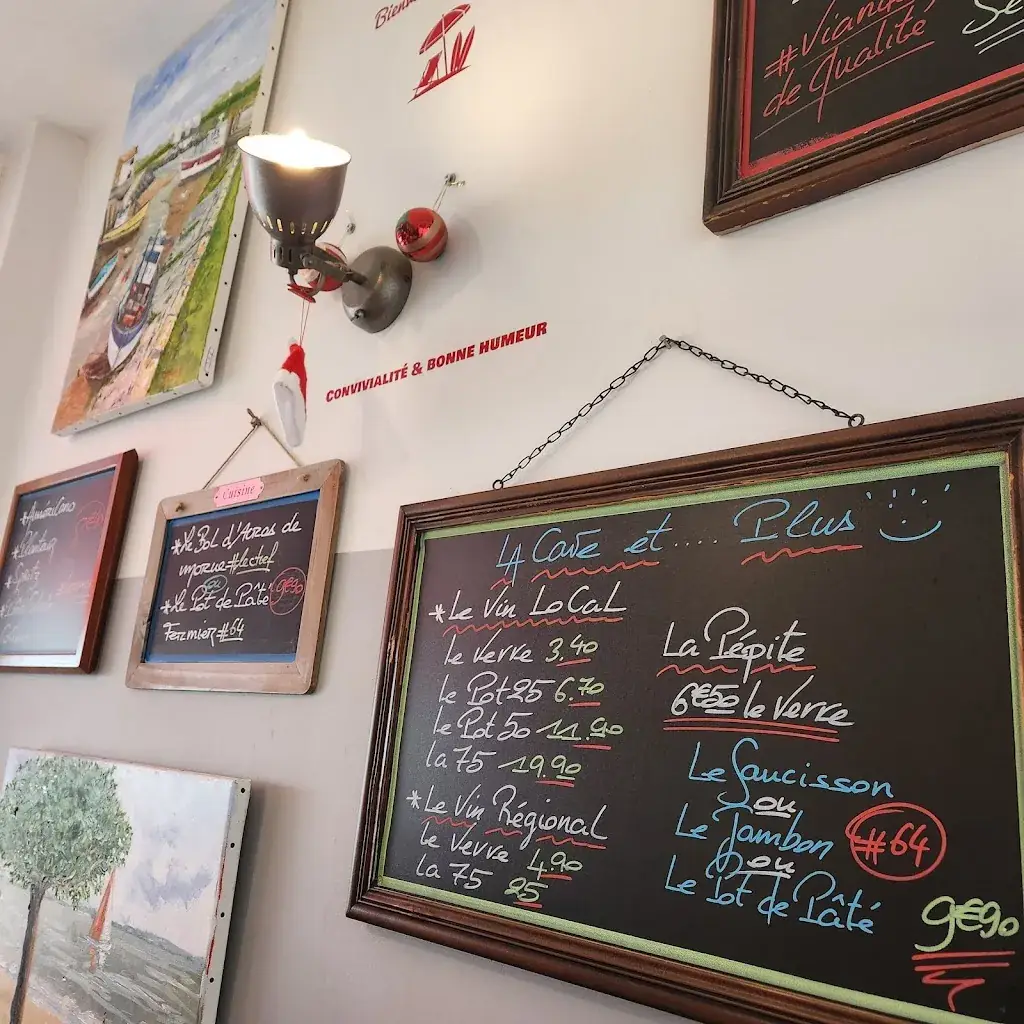 #Viande
de Qualité
CONVIVIALITÉ & BONNE HUMEUR
*Américano
*Planteur
Cuisine
*Le Bol d'Accras de
morue #lechef
ou
*Le Pot de Pâté
9€90
Fermier #64
LA Cave et.... Plus
*Le Vin LoCal
le verre 3.40
le Pot 25 6.70
le Pot 50 11.90
la 75 19.90
*Le Vin Régional
le verre 4.90
la 75 25
La Pépite
6€50 le verre
Le Saucisson
ou
Le Jambon
ou
#64
Le Pot de Pâté
9€90